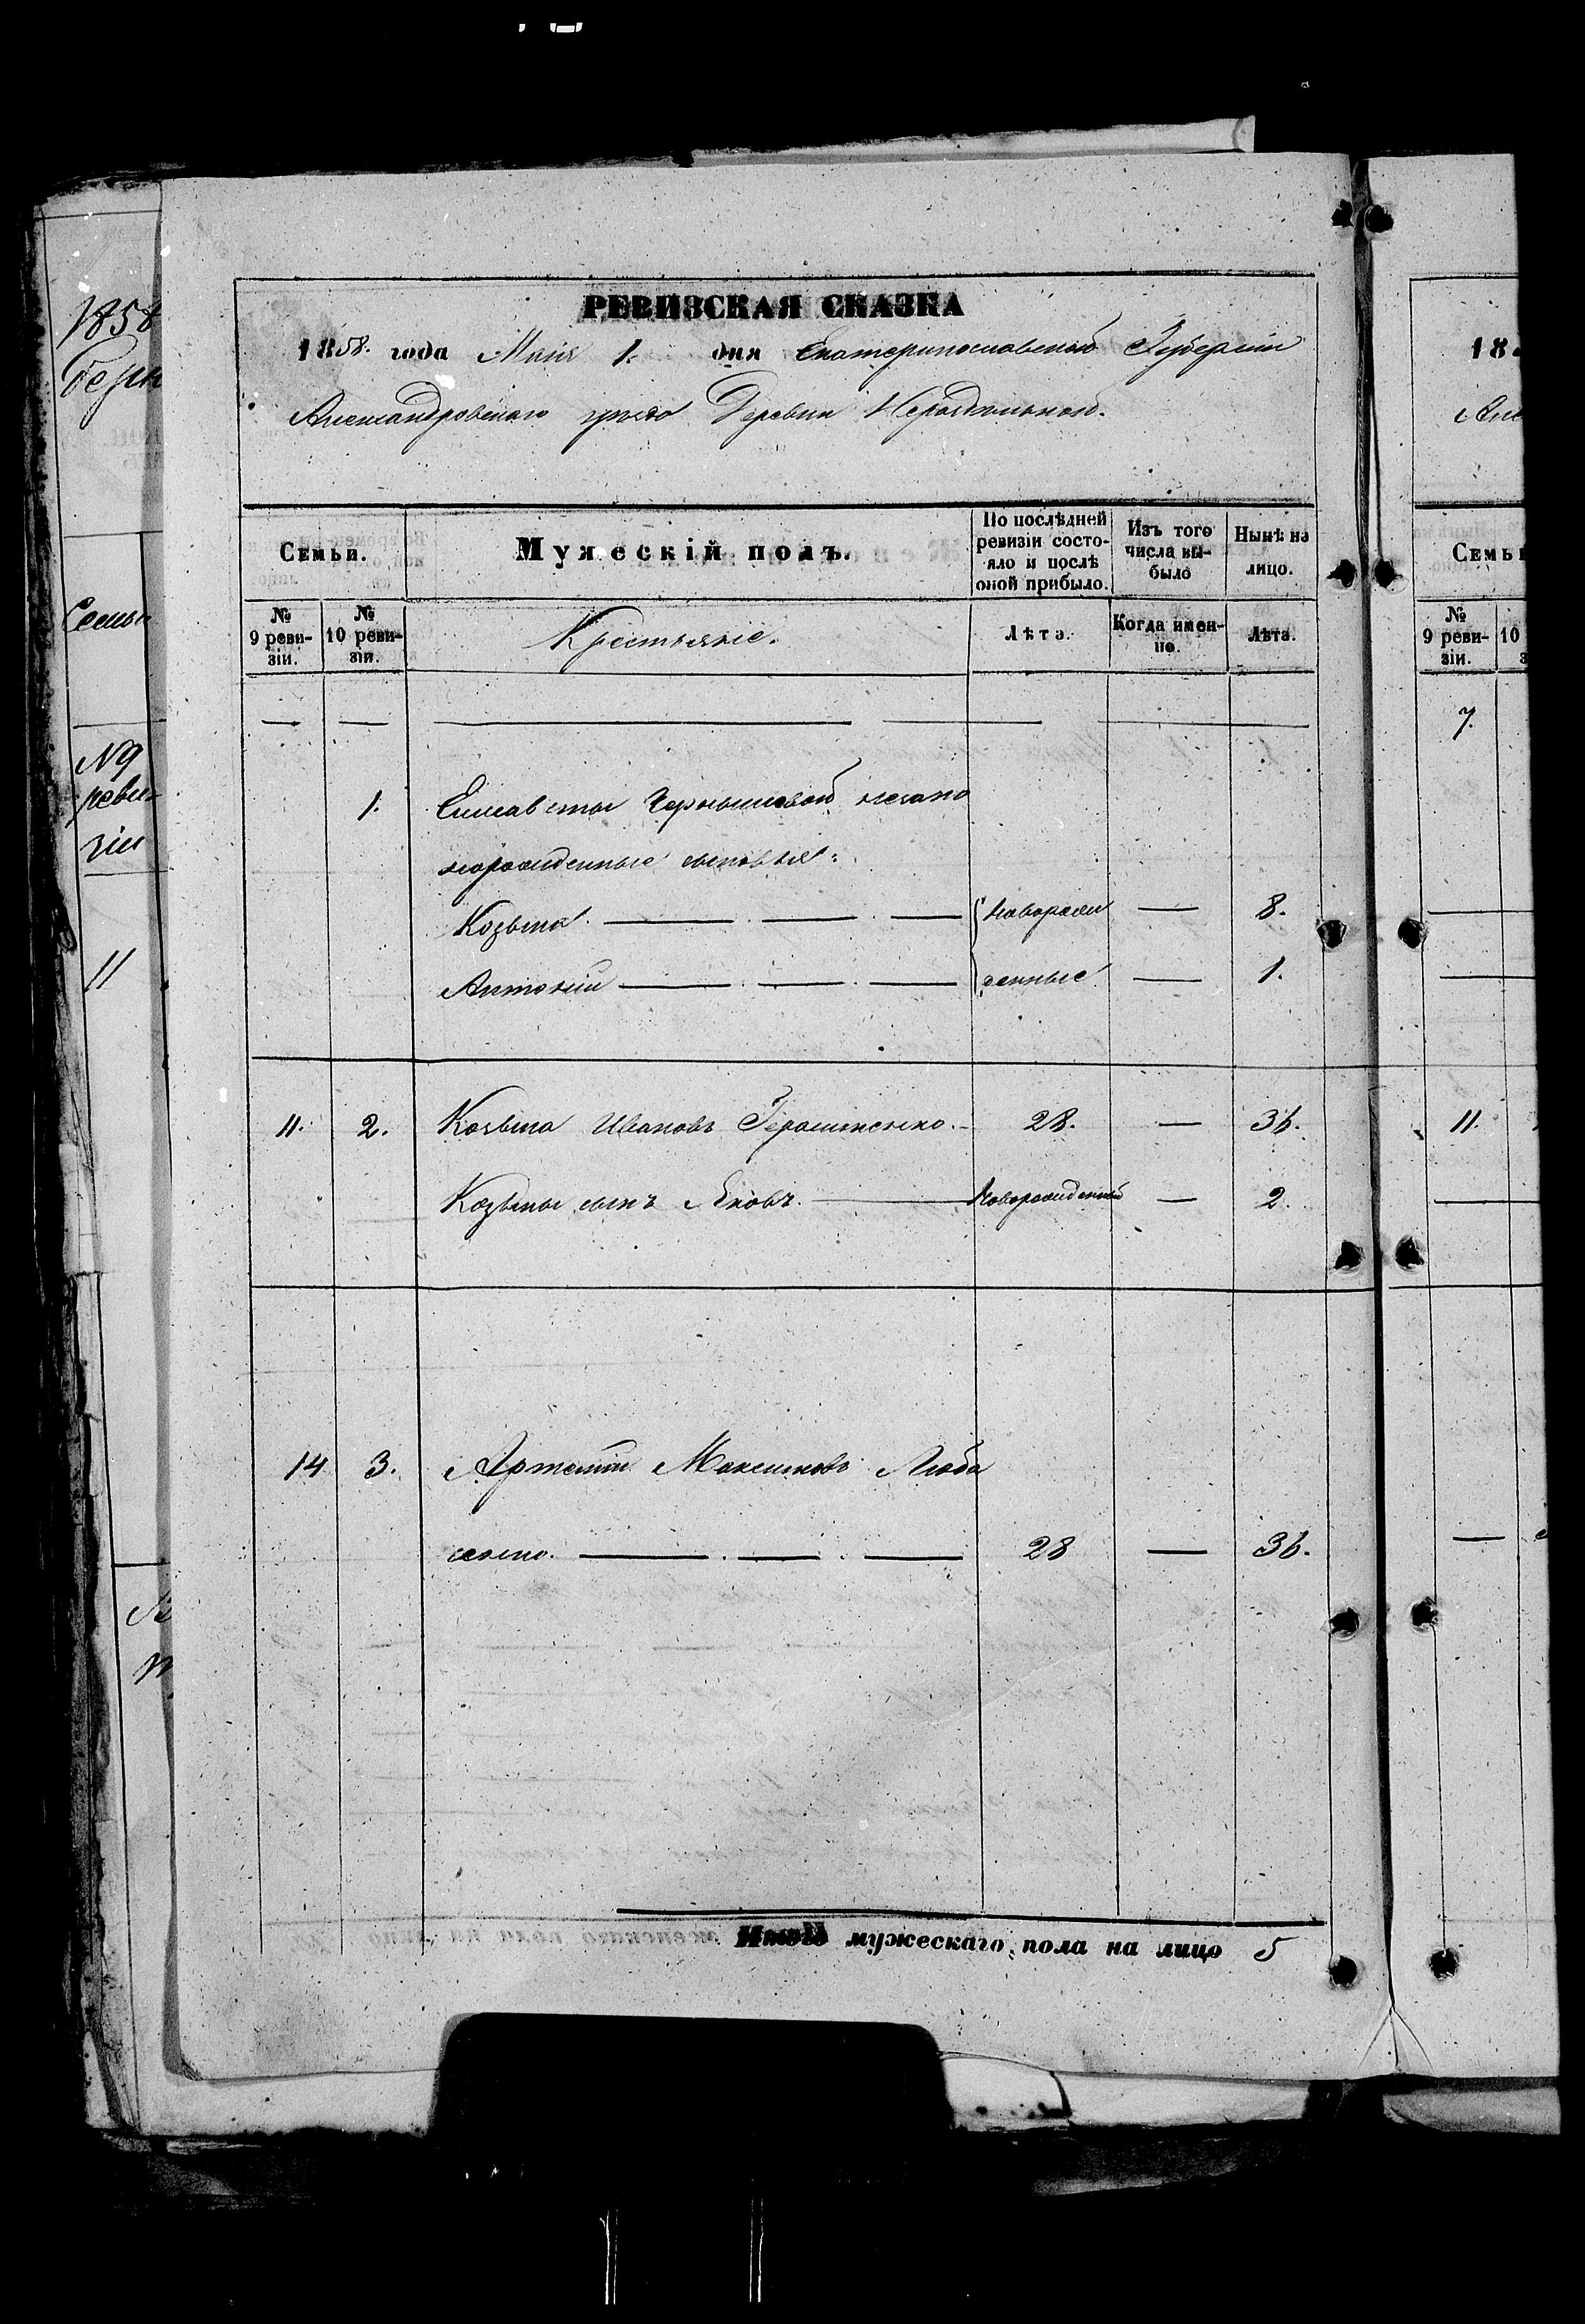 РЕВИЗСКАЯ СКАЗКА
1858. года Маія 1. дня Екатеринославской Губерніи
Александровскаго уѣзда Деревни Нераздѣльной.
Семьи.
Мужескій полъ.
По послѣдней ревизіи состояло и послѣ оной прибыло.
Изъ того числа выбыло
Нынѣ на лицо.
№ 9 ревизіи.
№ 10 ревизіи.
Крестьяне.
Лѣта.
Когда именно.
Лѣта.
1. Елисаветы Чернышовой незаконно
рожденные сыновья:
Козьма новорож 8.
Антоній денные 1.
11. 2. Козьма Ивановъ Герасименко. 28. 36.
Козьмы сынъ Яковъ. Новорожденный 2.
14 3. Артемій Максимовъ Люба
сенко. 28 36.
Итого мужескаго пола на лицо 5
1858
Семьи
№9
реви
зіи
11
18
Але
Семьи
№ 9 ревизіи.
10
7.
11.